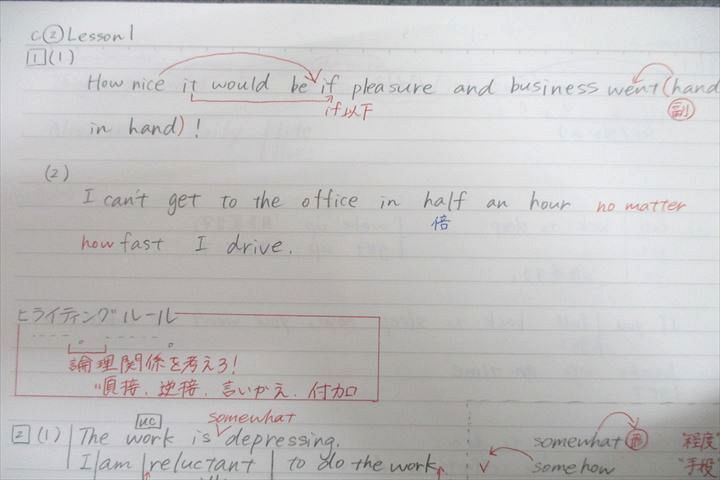 C② Lesson 1
1 (1)
How nice it would be if pleasure and business went (hand
if以下
副
in hand) !
(2)
I can't get to the office in half an hour no matter
倍
how fast I drive.
ライティングルール
論理関係を考えろ!
順接、逆接、言いかえ、付加
uc somewhat
2 (1) The work is depressing.
somewhat 副 "程度"
I am reluctant to do the work
v somehow "手段"